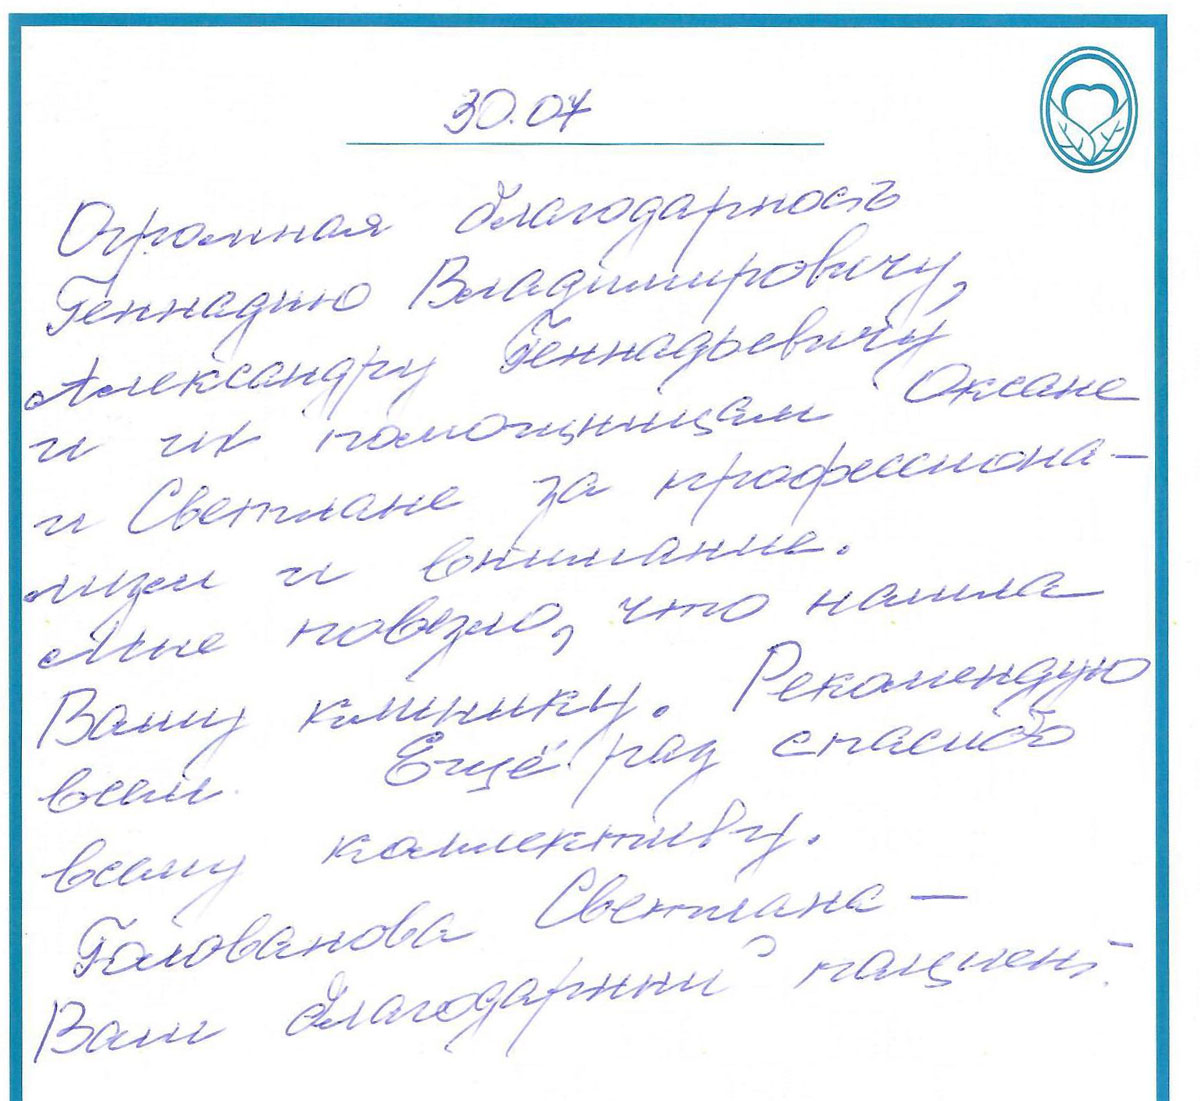 30.07
Огромная благодарность
Геннадию Владимировичу,
Александру Геннадьевичу
и их помощницам Оксане
и Светлане за профессиона-
лизм и внимание.
Мне повезло, что нашла
Вашу клинику. Рекомендую
всем. Ещё раз спасибо
всему коллективу.
Голованова Светлана –
Ваш благодарный пациент.